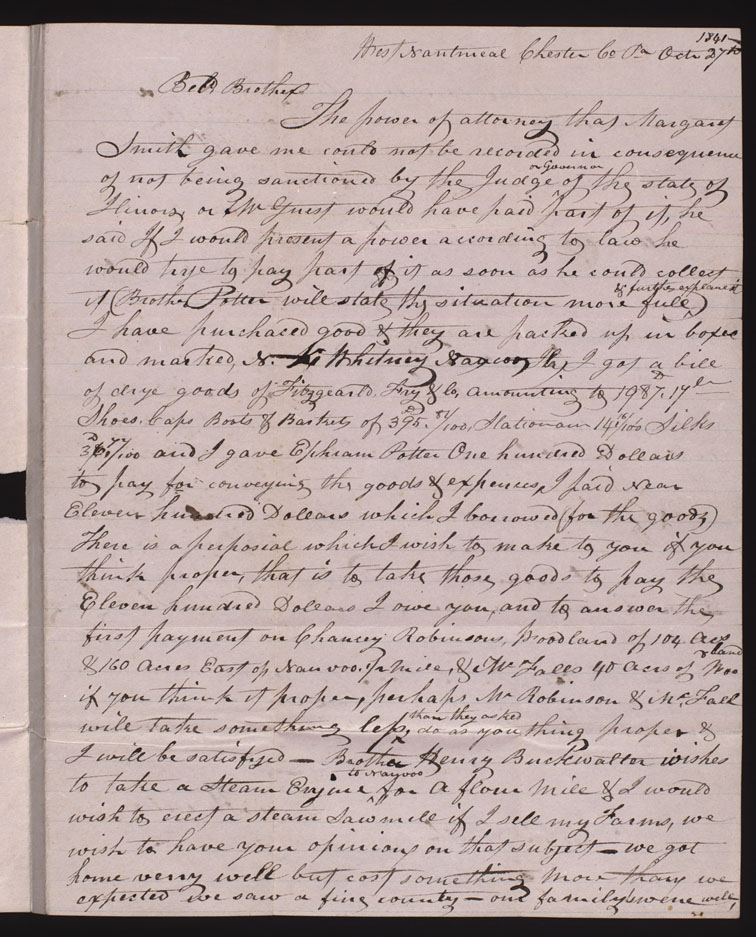 1841
West Nantmeal Chester Co Pa Octr 27th
Beld Brother
The power of attorney that Margaret
Smith gave me could not be recorded in consequence
of not being sanctioned by the Judge or Govenor of the state of
Ilinois, or Mr Guest would have paid part of it, he
said If I would present a power according to law he
would trye to pay part of it as soon as he could collect
it (Brother Potter will state the situation more full & further explane it)
I have purchased good & they are packed up in boxes
and marked, N. K. Whitney Nauvoo Ill, I got a bill
of drye goods of Fitzgearld. Fry & Co, amounting to 1987.D 17cts
Shoes. Caps Boots & Baskets of 395.D 81/100, Stationary 14 16/100 Silks
D 77/100 and I gave Ephram Potter One hundred Dollars
to pay for conveying the goods & expences, I paid Near
Eleven hundred Dollars which I borrowed (for the goods)
There is a perposial which I wish to make to you if you
think proper, that is to take those goods to pay the
Eleven hundred Dollars I owe you, and to answer the
first payment on Chancey Robinsons, Woodland of 104 Acrs
& 160 Acres East of Nauvoo. 7 mile, & Mc Falls 40 Acrs of Wood land
if you think it proper, perhaps Mr Robinson & Mc Fall
will take something less, than they asked do as you thing proper &
I will be satisfyed — Brother Henry Buckwalter wishes
to take a Steam Engine to Nauvoo for a flour mile & I would
wish to erect a steam Sawmile if I sell my Farms, we
wish to have your opinions on that subject — we got
home verry well but cost something more than we
expected we saw a fine county — our family's were well,